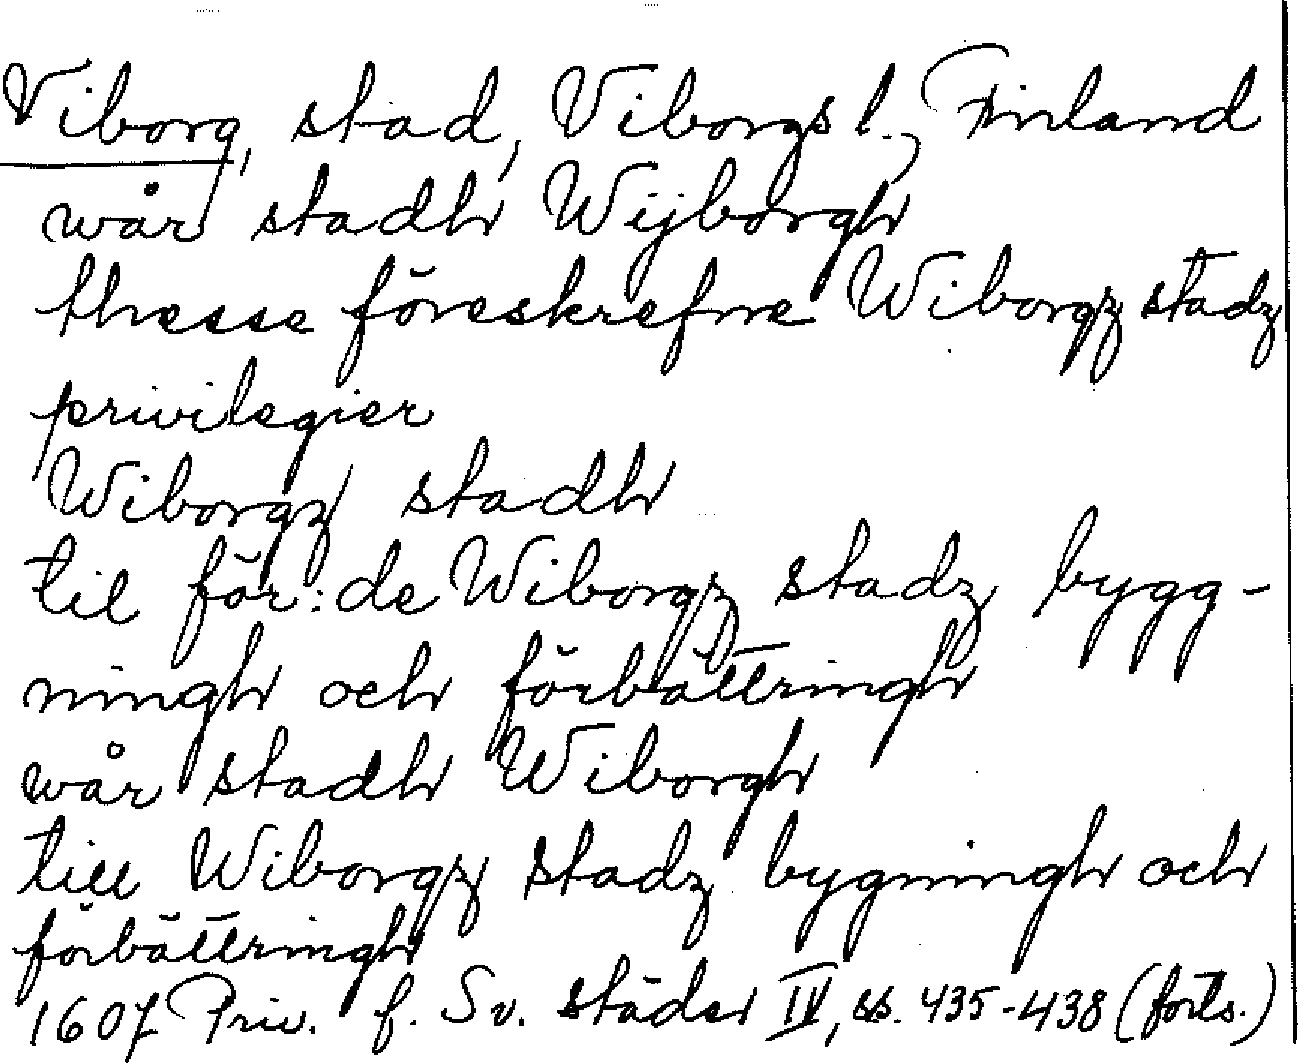 Viborg, stad, Viborgs l., Finland
wår stadh Wijborgh
thesse föreskrefne Wiborgz stadz
privilegier
Wiborgz stadh
til för:de Wiborgz stadz bygg-
ningh och förbättringh
wår stadh Wiborgh
till Wiborgz stadz bygningh och
förbättringh
1607 Priv. f. Sv. städer IV, ss. 435-438 (forts.)